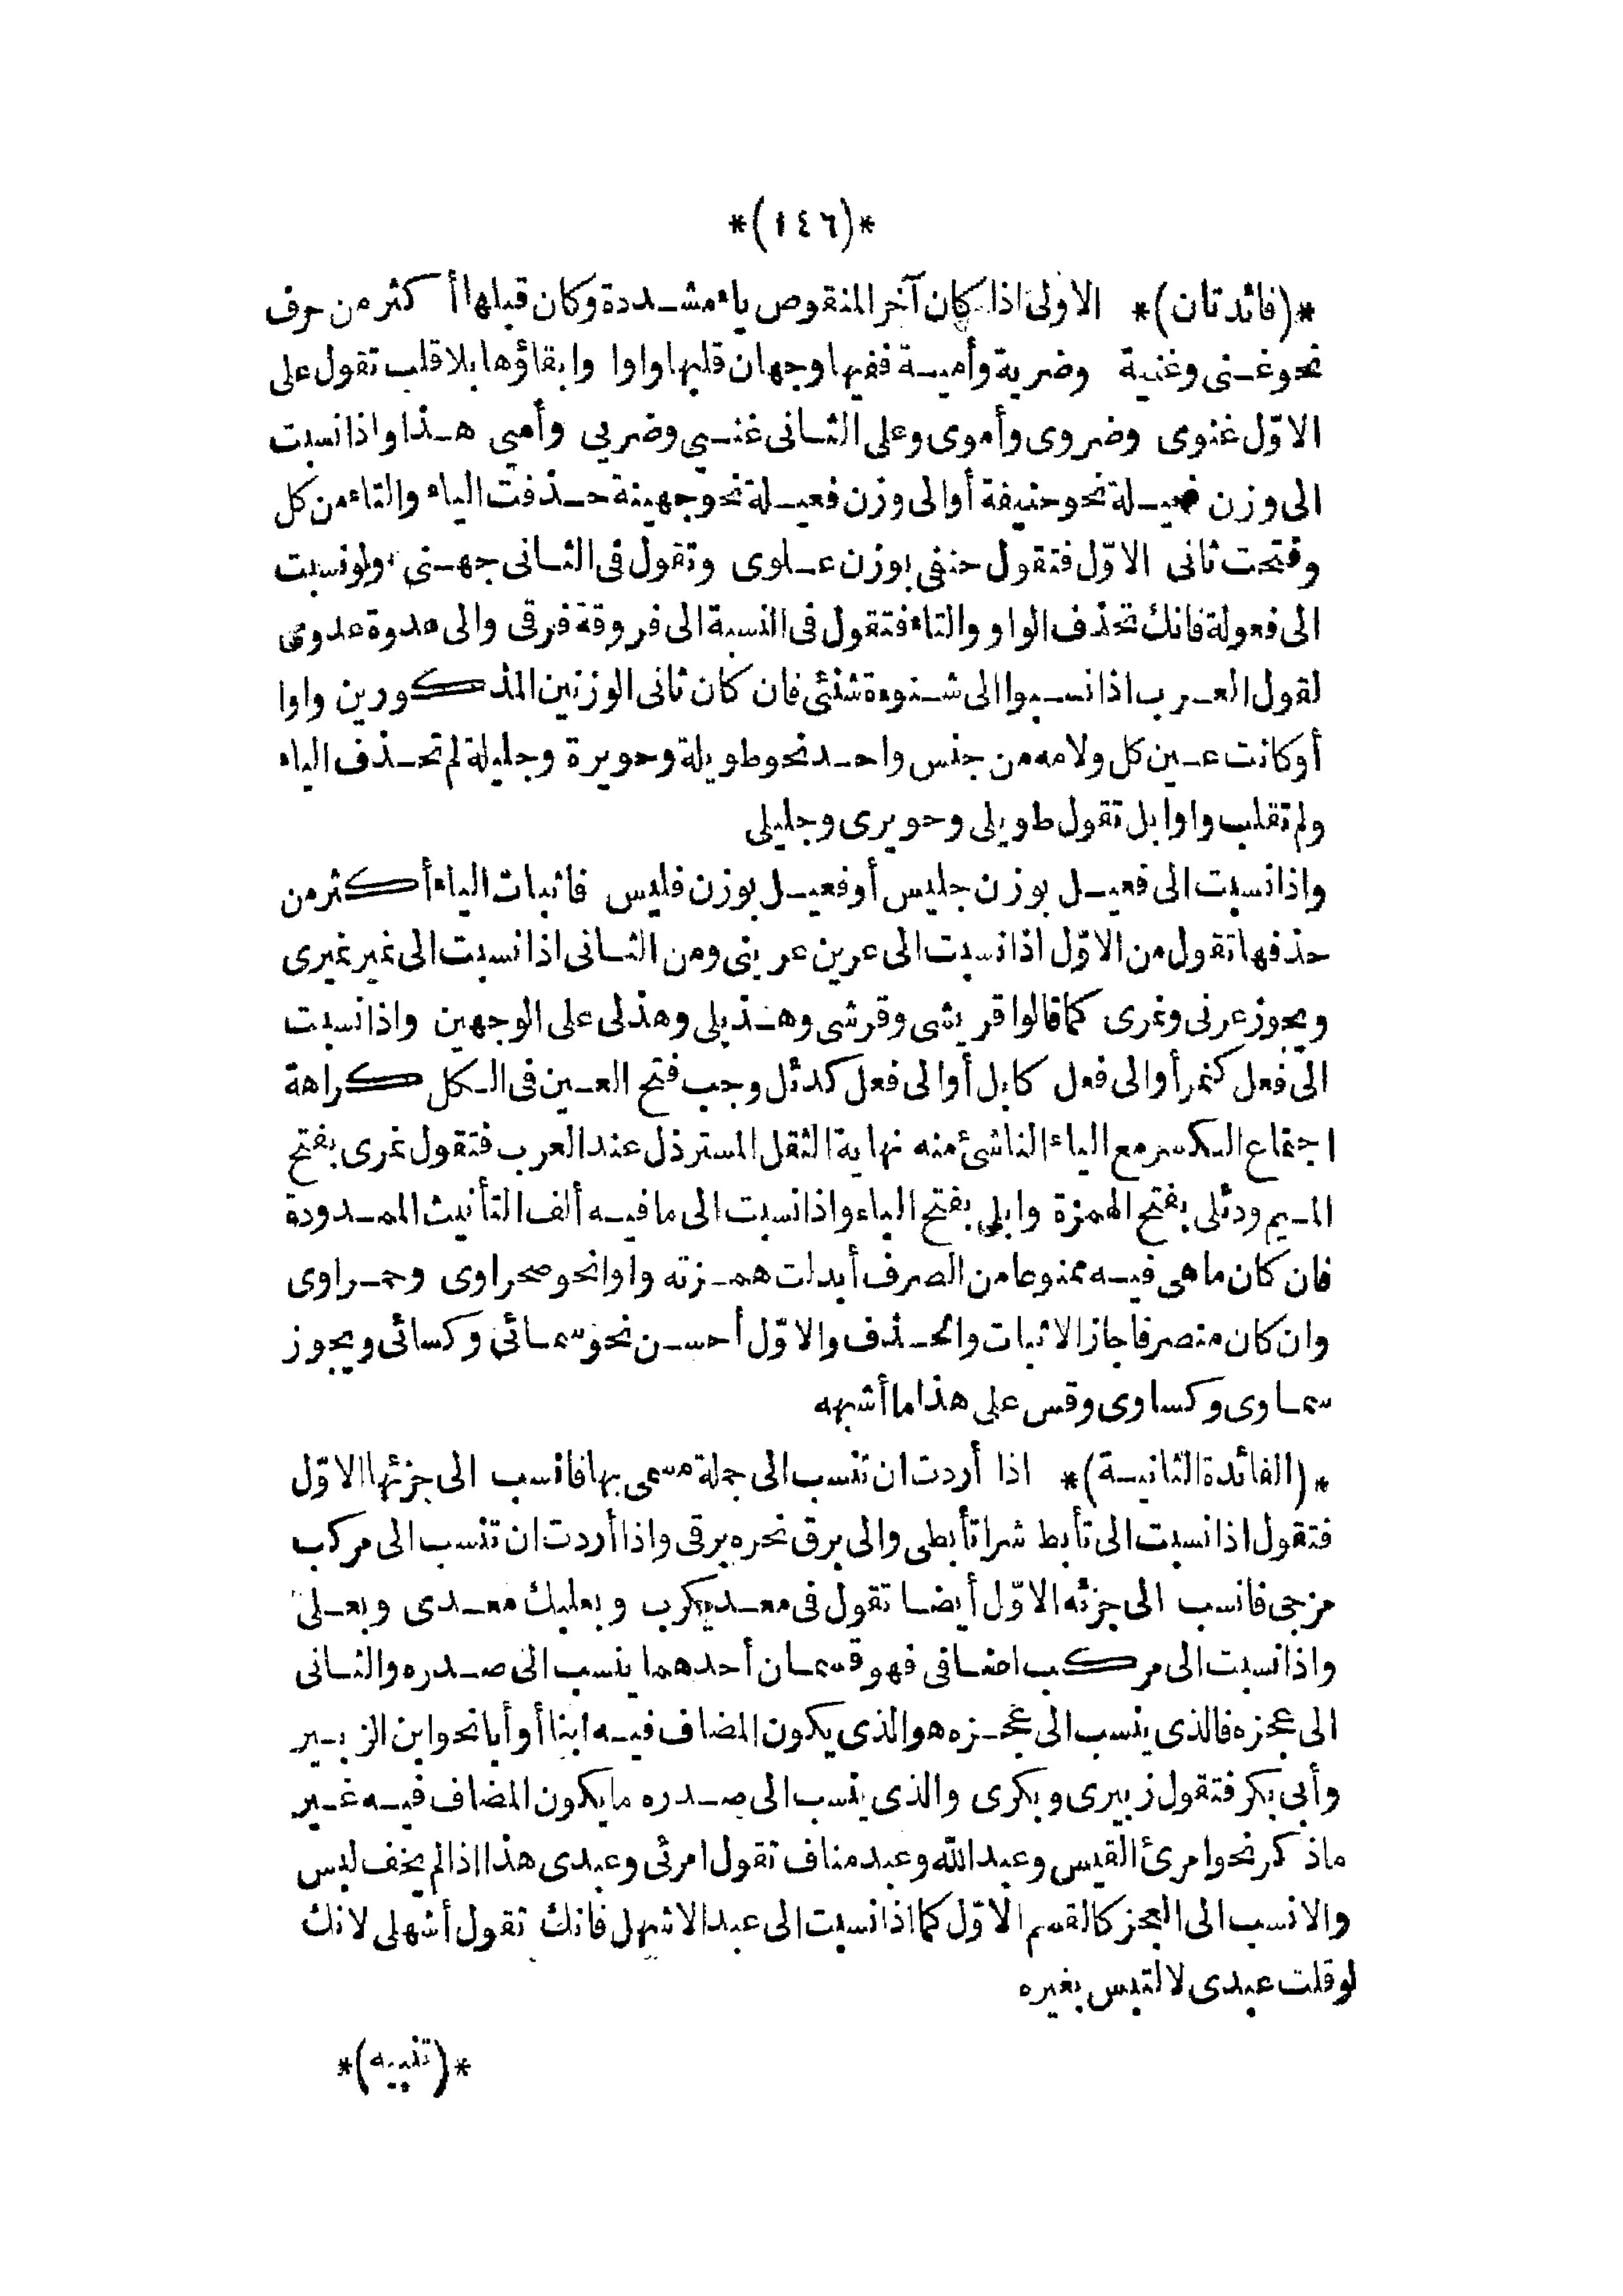 *(١٤٦)*
*(فائدتان)* الاولى اذا كان آخر المنقوص ياء مشددة وكان قبلها أكثر من حرف
نحو غنى وغنية وضرية وأمية ففيها وجهان قلبها واوا وابقاؤها بلا قلب تقول على
الاوّل غنوى وضروى وأموى وعلى الثانى غنيي وضريي وأميي هذا واذا نسبت
الى وزن فعيلة نحو حنيفة أو الى وزن فعيلة نحو جهينة حذفت الياء والتاء من كل
وفتحت ثانى الاوّل فتقول حنفى بوزن علوى وتقول فى الثانى جهنى ولو نسبت
الى فعولة فانك تحذف الواو والتاء فتقول فى النسبة الى فروقة فرقى والى عدوة عدوى
لقول العرب اذا نسبوا الى شنوءة شنئى فان كان ثانى الوزنين المذكورين واوا
أو كانت عين كل ولامه من جنس واحد نحو طويلة وحويرة وجليلة لم تحذف الياء
ولم تقلب واوا بل تقول طويلى وحويرى وجليلى
واذا نسبت الى فعيل بوزن جليس أو فعيل بوزن فليس فاثبات الياء أكثر من
حذفها تقول من الاوّل اذا نسبت الى عرين عرينى ومن الثانى اذا نسبت الى نمير نميرى
ويجوز عرنى ونمرى كما قالوا قريشى وقرشى وهذيلى وهذلى على الوجهين واذا نسبت
الى فعل كنمر أو الى فعل كابل أو الى فعل كدئل وجب فتح العين فى الكل كراهة
اجتماع الكسر مع الياء الناشئ منه نهاية الثقل المسترذل عند العرب فتقول نمرى بفتح
الميم ودئلى بفتح الهمزة وابلى بفتح الباء واذا نسبت الى ما فيه ألف التأنيث الممدودة
فان كان ما هى فيه ممنوعا من الصرف أبدلت همزته واوا نحو صحراوى وحمراوى
وان كان منصرفا جاز الاثبات والحذف والاوّل أحسن نحو سمائى وكسائى ويجوز
سماوى وكساوى وقس على هذا ما أشبهه
*(الفائدة الثانية)* اذا أردت ان تنسب الى جملة مسمى بها فانسب الى جزئها الاوّل
فتقول اذا نسبت الى تأبط شرا تأبطى والى برق نحره برقى واذا أردت ان تنسب الى مركب
مزجى فانسب الى جزئه الاوّل أيضا تقول فى معديكرب وبعلبك معدى وبعلى
واذا نسبت الى مركب اضافى فهو قسمان أحدهما ينسب الى صدره والثانى
الى عجزه فالذى ينسب الى عجزه هو الذى يكون المضاف فيه ابنا أو أبا نحو ابن الزبير
وأبى بكر فتقول زبيرى وبكرى والذى ينسب الى صدره ما يكون المضاف فيه غير
ما ذكر نحو امرئ القيس وعبد الله وعبد مناف تقول امرئى وعبدى هذا اذا لم يخف لبس
والا نسب الى العجز كالقسم الاوّل كما اذا نسبت الى عبد الاشهل فانك تقول أشهلى لانك
لو قلت عبدى لالتبس بغيره
*(تنبيه)*